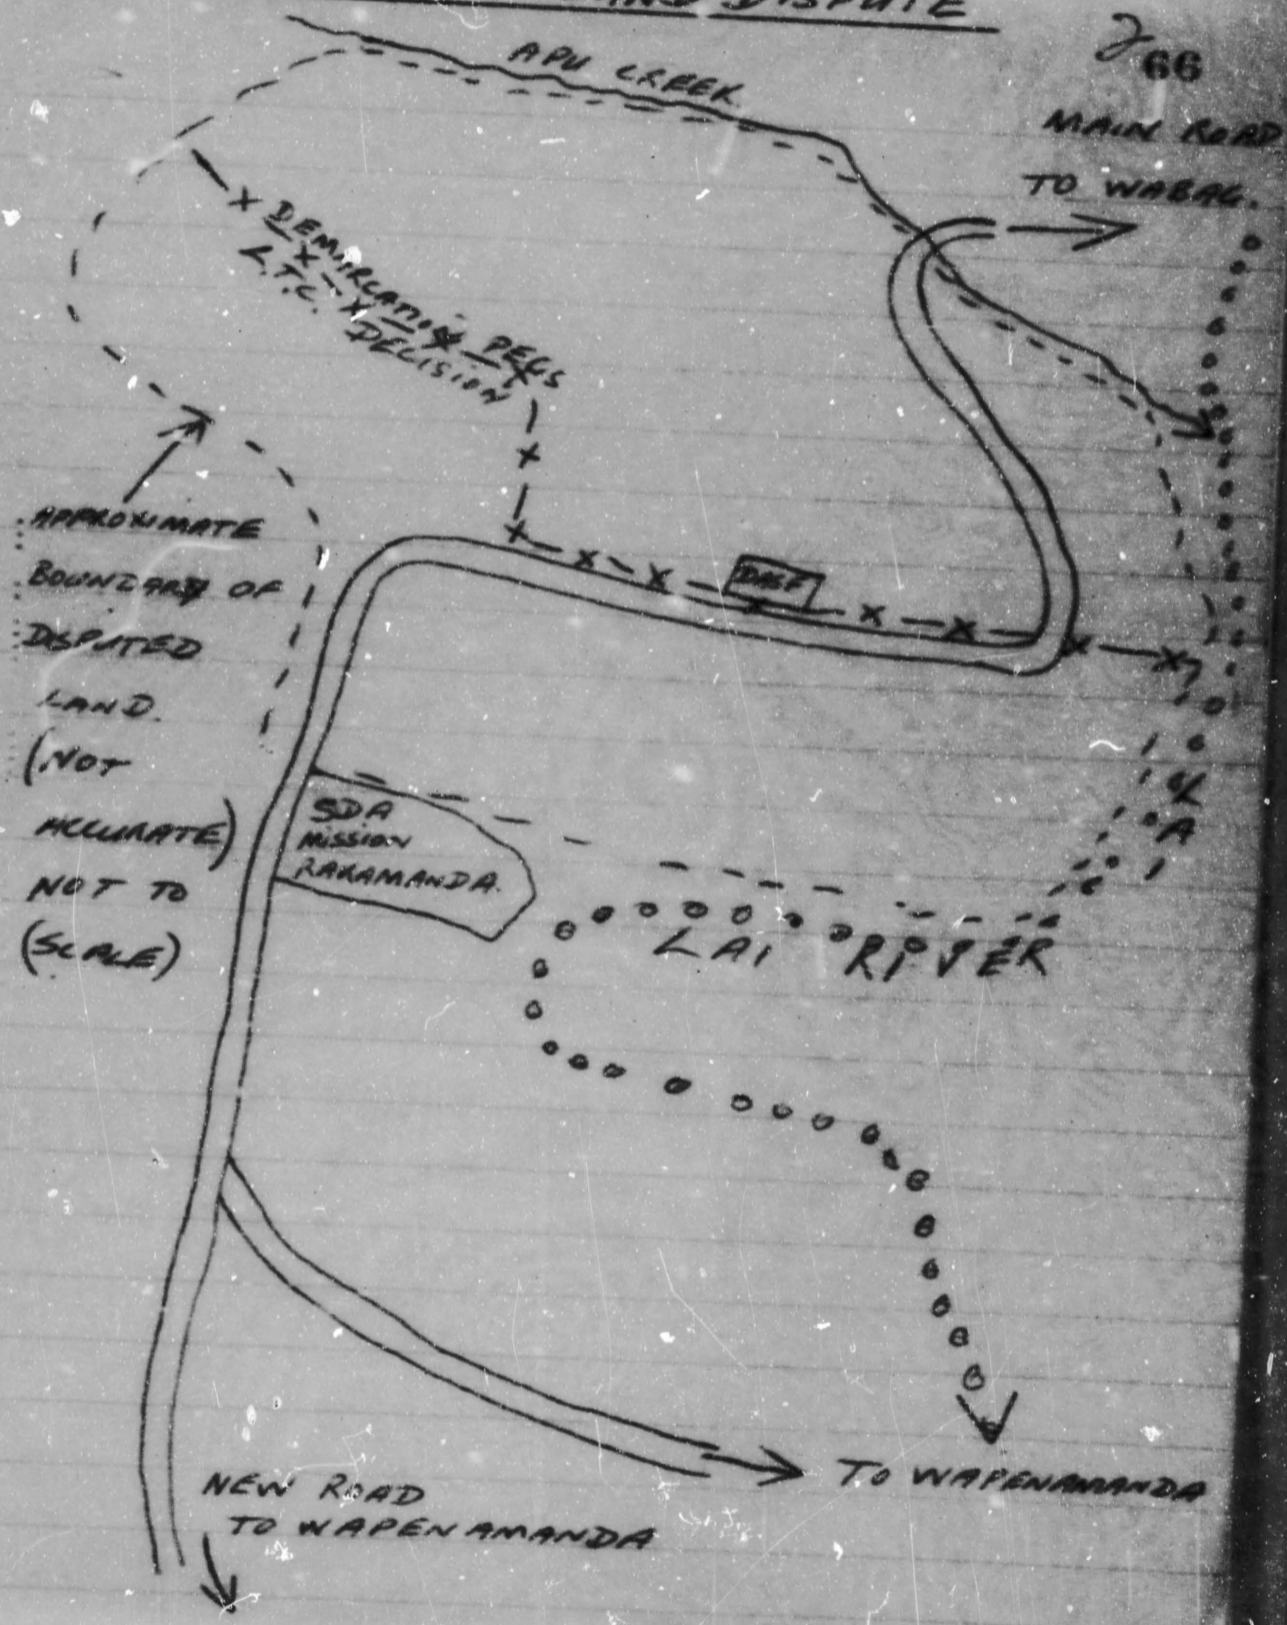 LAND DISPUTE
66
APU CREEK
MAIN ROAD
TO WABAG.
DEMARCATION PEGS
L.T.C. DECISION
APPROXIMATE
BOUNDARY OF
DISPUTED
LAND.
(NOT
ACCURATE)
NOT TO
(SCALE)
DASF
SDA
MISSION
RAKAMANDA.
LAI RIVER
TO WAPENAMANDA
NEW ROAD
TO WAPENAMANDA